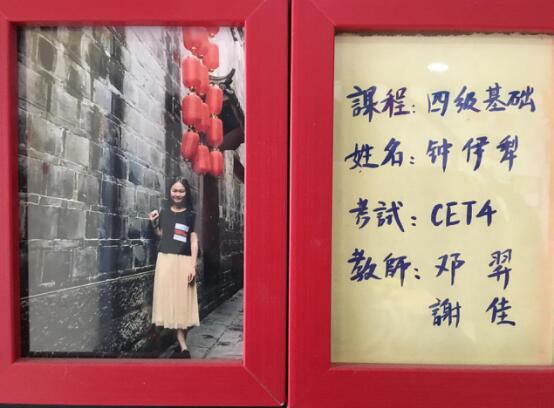 課程：四级基础
姓名：钟伊犁
考試：CET4
教師：邓 羿
謝 佳